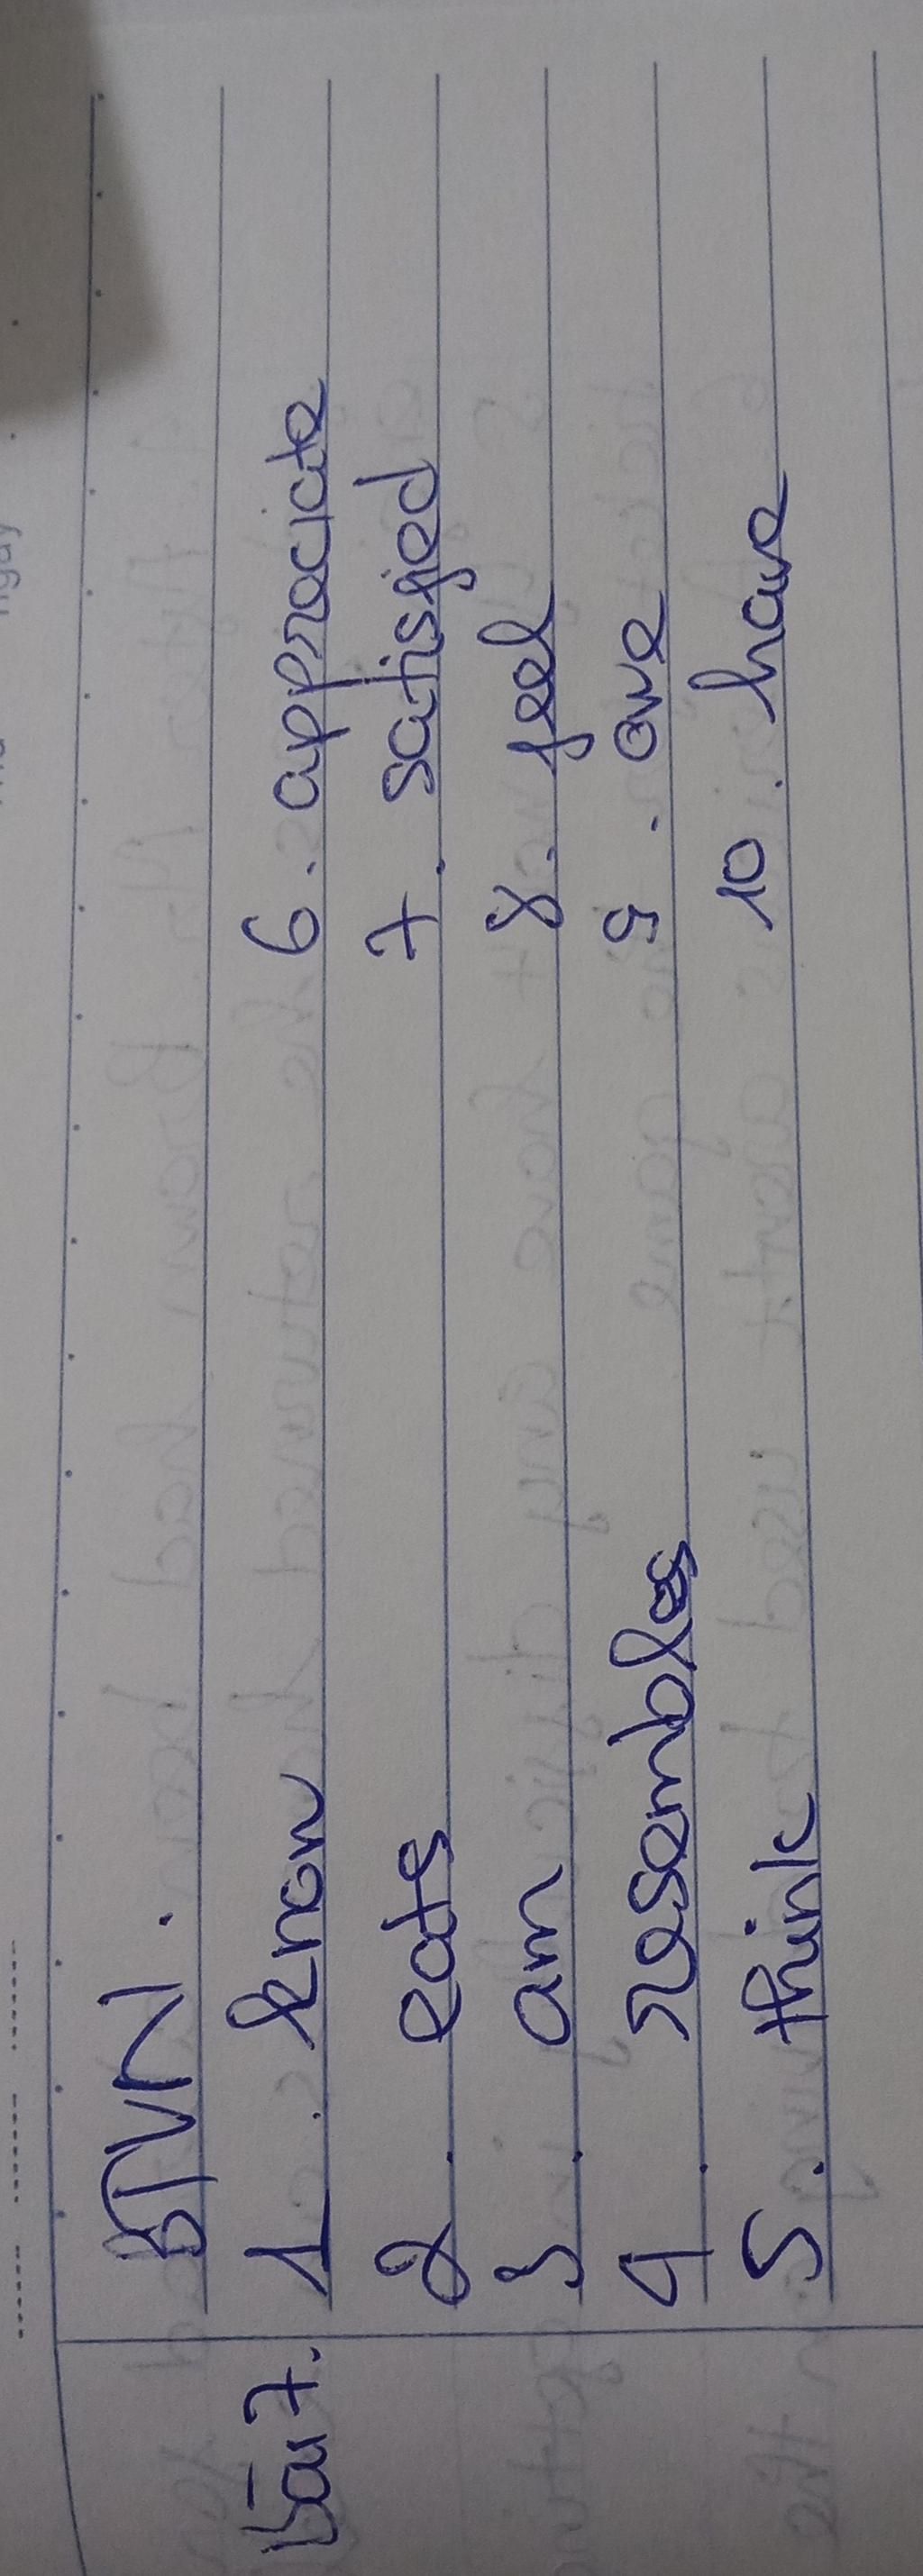 BTVN.
Bài 7. 1. know 6. appreciate
2. eats 7. satisfied
3. am 8. feel
4. resembles 9. are
5. think 10 have